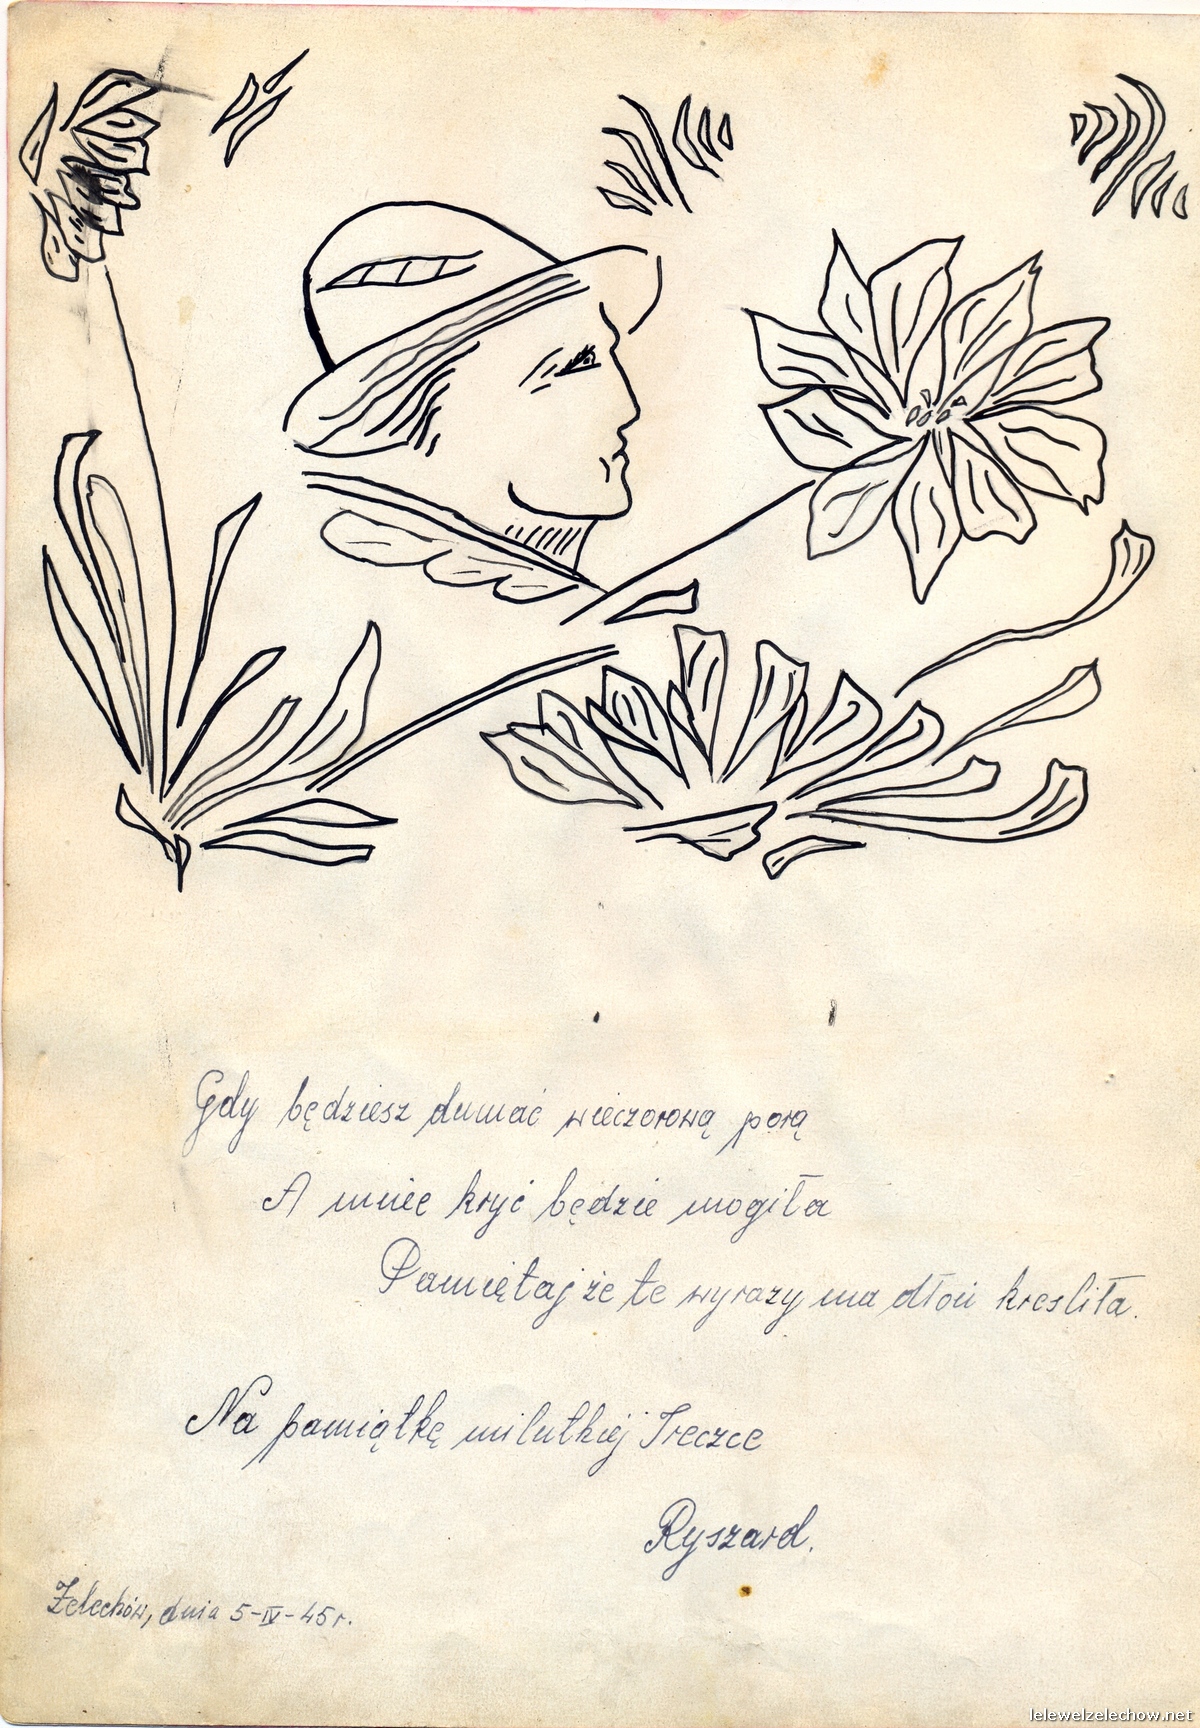 Gdy będziesz dumać wieczorową porą
A mnie kryć będzie mogiła
Pamiętaj że te wyrazy ma dłoń kresliła.
Na pamiątkę milutkiej Ireczce
Ryszard.
Żelechów, dnia 5-IV-45 r.
lelewelzelechow.net